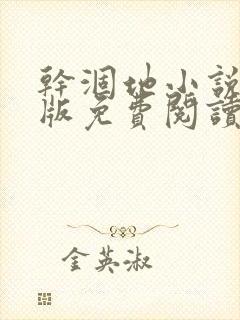 幹涸地小説
版免費閱讀
金英淑